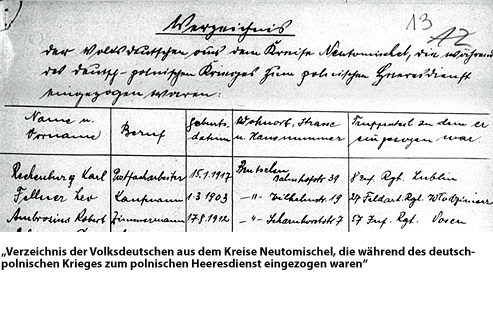 Verzeichnis
13
AZ
der Volksdeutschen aus dem Kreise Neutomischel, die während
des deutsch-polnischen Krieges zum polnischen Heeresdienst
eingezogen waren:
Name u. Vorname | Beruf | Geburtsdatum | Wohnort, Strasse u. Hausnummer | Truppenteil zu dem er eingezogen war.
Rechenburg Karl | arbeiter | 15.1.1917 | Bentschen Bahnhofstr 31 | 8 Inf. Rgt. Lublin
Fellner Leo | Kaufmann | 1.3 1903 | -"- Wilhelmstr. 19 | 27 Feldart. Rgt.
Ambrosius Robert | Zimmermann | 17.8.1912 | -"- Scharnhorststr 7 | 57 Inf. Rgt. Posen
„Verzeichnis der Volksdeutschen aus dem Kreise Neutomischel, die während des deutsch-
polnischen Krieges zum polnischen Heeresdienst eingezogen waren“